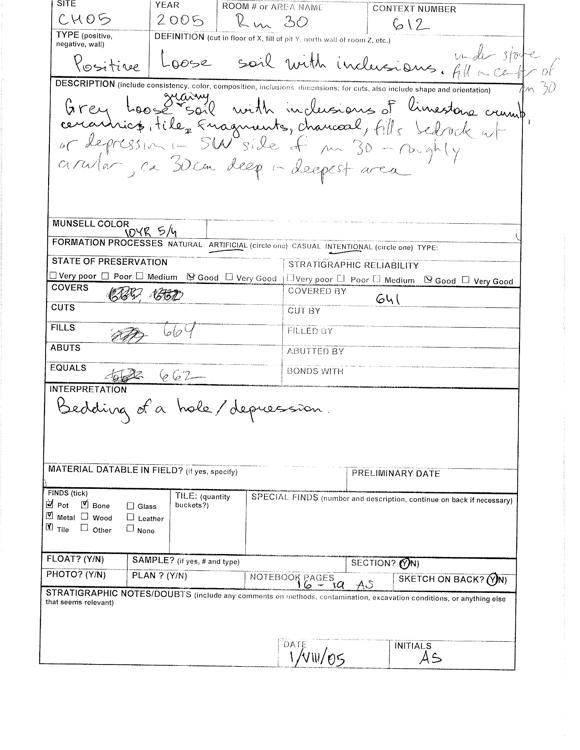 SITE YEAR ROOM # or AREA NAME CONTEXT NUMBER
CH05 2005 Rm 30 612
TYPE (positive, negative, wall) DEFINITION (cut in floor of X, fill of pit Y, north wall of room Z, etc.)
Positive Loose soil with inclusions. under stone
fill in center of
rm 30
DESCRIPTION (include consistency, color, composition, inclusions, dimensions; for cuts, also include shape and orientation)
Grey loose grainy soil with inclusions of limestone crumb,
ceramics, tile fragments, charcoal, fills bedrock cut
or depression in SW side of rm 30 – roughly
circular, ca 30cm deep in deepest area
MUNSELL COLOR
10YR 5/4
FORMATION PROCESSES NATURAL ARTIFICIAL (circle one) CASUAL INTENTIONAL (circle one) TYPE:
STATE OF PRESERVATION STRATIGRAPHIC RELIABILITY
Very poor Poor Medium Good Very Good Very poor Poor Medium Good Very Good
COVERS COVERED BY 641
CUTS CUT BY
FILLS 664 FILLED BY
ABUTS ABUTTED BY
EQUALS 662 BONDS WITH
INTERPRETATION
Bedding of a hole/depression.
MATERIAL DATABLE IN FIELD? (if yes, specify) PRELIMINARY DATE
FINDS (tick) TILE: (quantity buckets?) SPECIAL FINDS (number and description, continue on back if necessary)
Pot Bone Glass
Metal Wood Leather
Tile Other None
FLOAT? (Y/N) SAMPLE? (if yes, # and type) SECTION? (Y/N)
PHOTO? (Y/N) PLAN? (Y/N) NOTEBOOK PAGES 16-19 AS SKETCH ON BACK? (Y/N)
STRATIGRAPHIC NOTES/DOUBTS (include any comments on methods, contamination, excavation conditions, or anything else
that seems relevant)
DATE INITIALS
1/VIII/05 AS